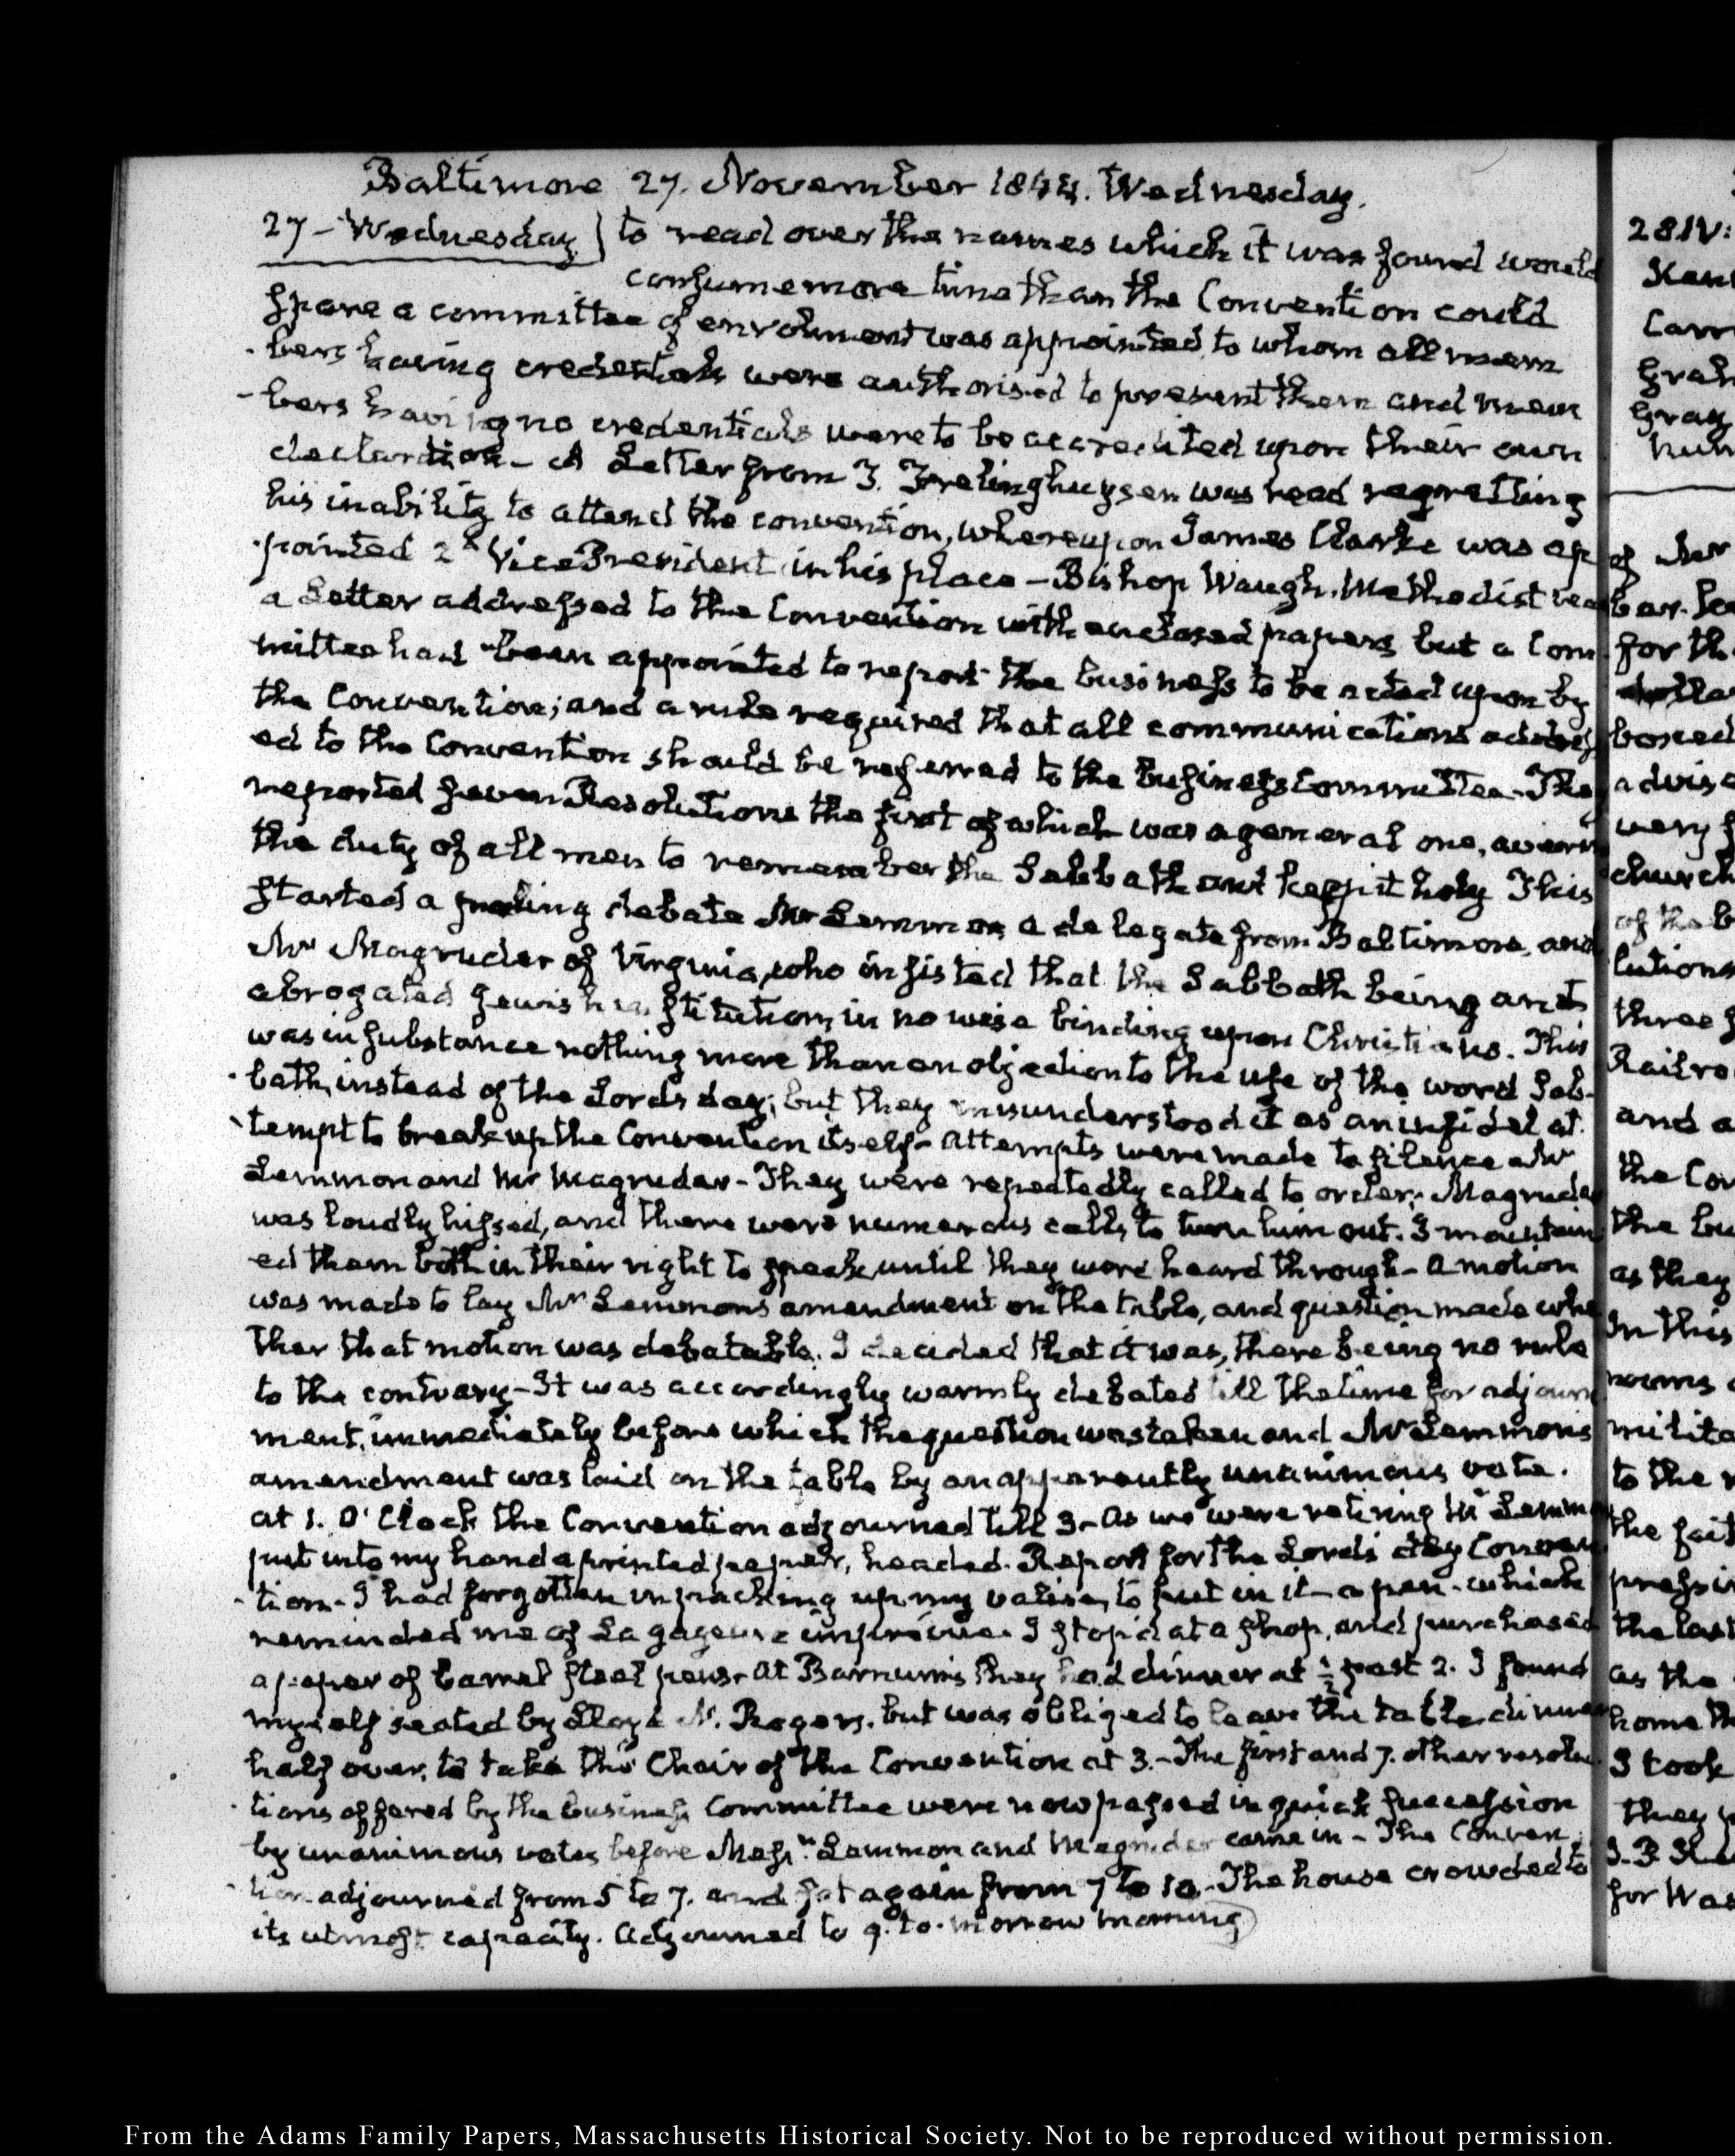 Baltimore 27. November 1844. Wednesday.
27 - Wednesday } to read over the names which it was found would
consume more time than the Convention could
spare a committee of enrolment was appointed, to whom all mem
-bers having credentials were authorised to present them and mem
-bers having no credentials were to be accredited upon their own
declaration - A Letter from T. Frelinghuysen was read regretting
his inability to attend the convention, whereupon James Clarke was ap
-pointed 2d Vice President in his place - Bishop Waugh, Methodist rea
a Letter addressed to the Convention with enclosed papers but a Com
mittee had been appointed to report the business to be acted upon by
the Convention; and a rule required that all communications address
ed to the Convention should be referred to the Business Committee - They
reported seven Resolutions the first of which was a general one, averring
the duty of all men to remember the Sabbath and keep it holy This
started a debate Mr Lemmon a delegate from Baltimore, and
Mr Magruder of Virginia, who insisted that the Sabbath being an
abrogated Jewish institution, in no wise binding upon Christians. This
was in substance nothing more than an objection to the use of the word Sab-
-bath, instead of the Lords day; but they misunderstood it as an infidel at
-tempt to break up the Convention itself - Attempts were made to silence Mr
Lemmon and Mr Magruder - They were repeatedly called to order; Magruder
was loudly hissed, and there were numerous calls, to turn him out. I maintain
ed them both in their right to speak, until they were heard through - A motion
was made to lay Mr Lemmons amendment on the table, and question made whe
ther that motion was debatable. I decided that it was, there being no rule
to the contrary - It was accordingly warmly debated till the time for adjourn
ment, immediately before which the question was taken and Mr Lemmons
amendment was laid on the table by an apparently unanimous vote.
at 1. O'Clock the Convention adjourned till 3 - As we were retiring Mr Lemmon
put into my hand a printed paper, headed. Report for the Lords day Conven
-tion - I had forgotten in packing up my valise, to put in it a pen - which
reminded me of La gageure imprévue. I stop'd at a shop, and purchased
a paper of barrel steel pens - At Barnum's they had dinner at ½ past 2. I found
myself seated by Lloyd N. Rogers. but was obliged to leave the table, dinner
half over, to take the Chair of the Convention at 3. - The first and 7. other resolu
-tions offered by the business Committee were now passed in quick succession
by unanimous votes before Messrs Lemmon and Magruder came in - The Conven
-tion adjourned from 5 to 7. and sat again from 7 to 10. - The house crowded to
its utmost capacity. Adjourned to 9. to-morrow morning
28 IV:
Carr
Gray
of
for th
boxed
advis
very
church
of the b
lutions
three
Railro
and a
the Con
the bu
as they
In this
rooms
milita
to the
the
the last
as the
home Th
I took
they
for Was
From the Adams Family Papers, Massachusetts Historical Society. Not to be reproduced without permission.